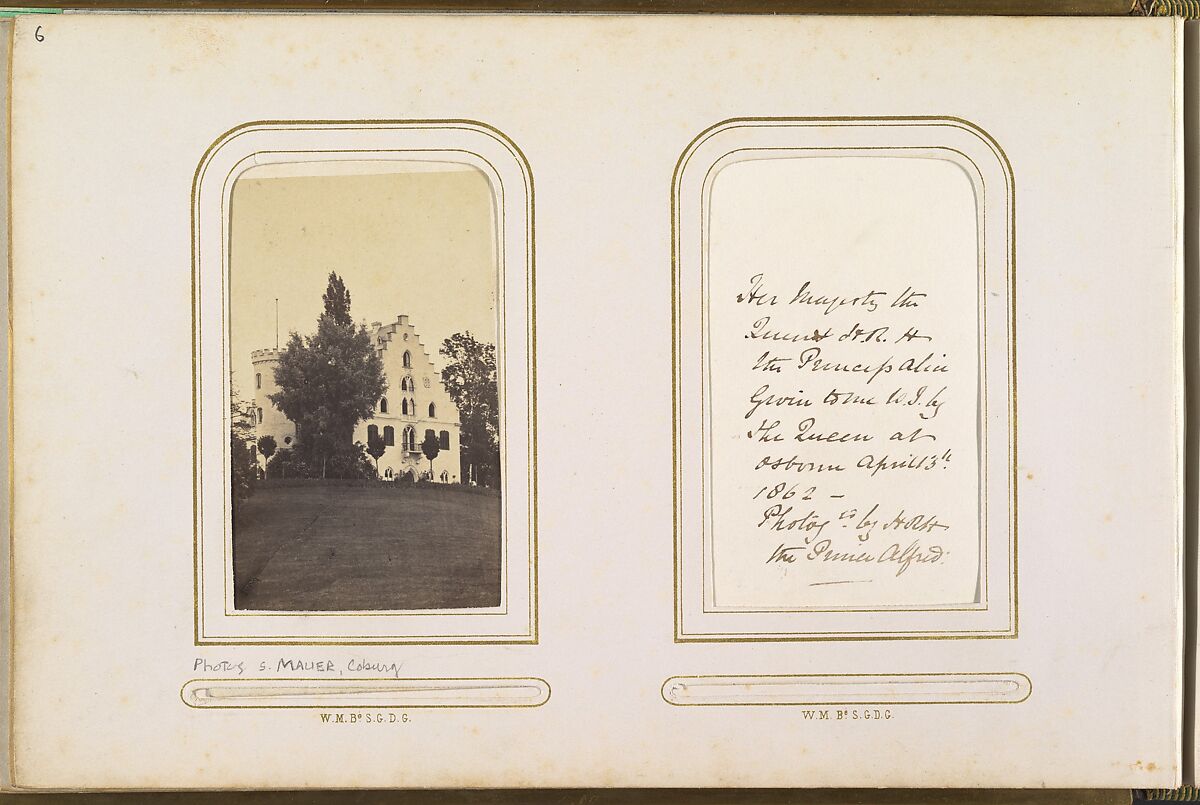 6
Photog S. MAUER, Coburg
W.M. Bᵉ S.G.D.G.
Her Majesty the
Queen & H.R.H
the Princess Alice
Given to me W.J. by
The Queen at
Osborne April 3ᵗʰ.
1862 –
Photogᵉᵈ. by H R H
the Prince Alfred.
W.M. Bᵉ S.G.D.G.